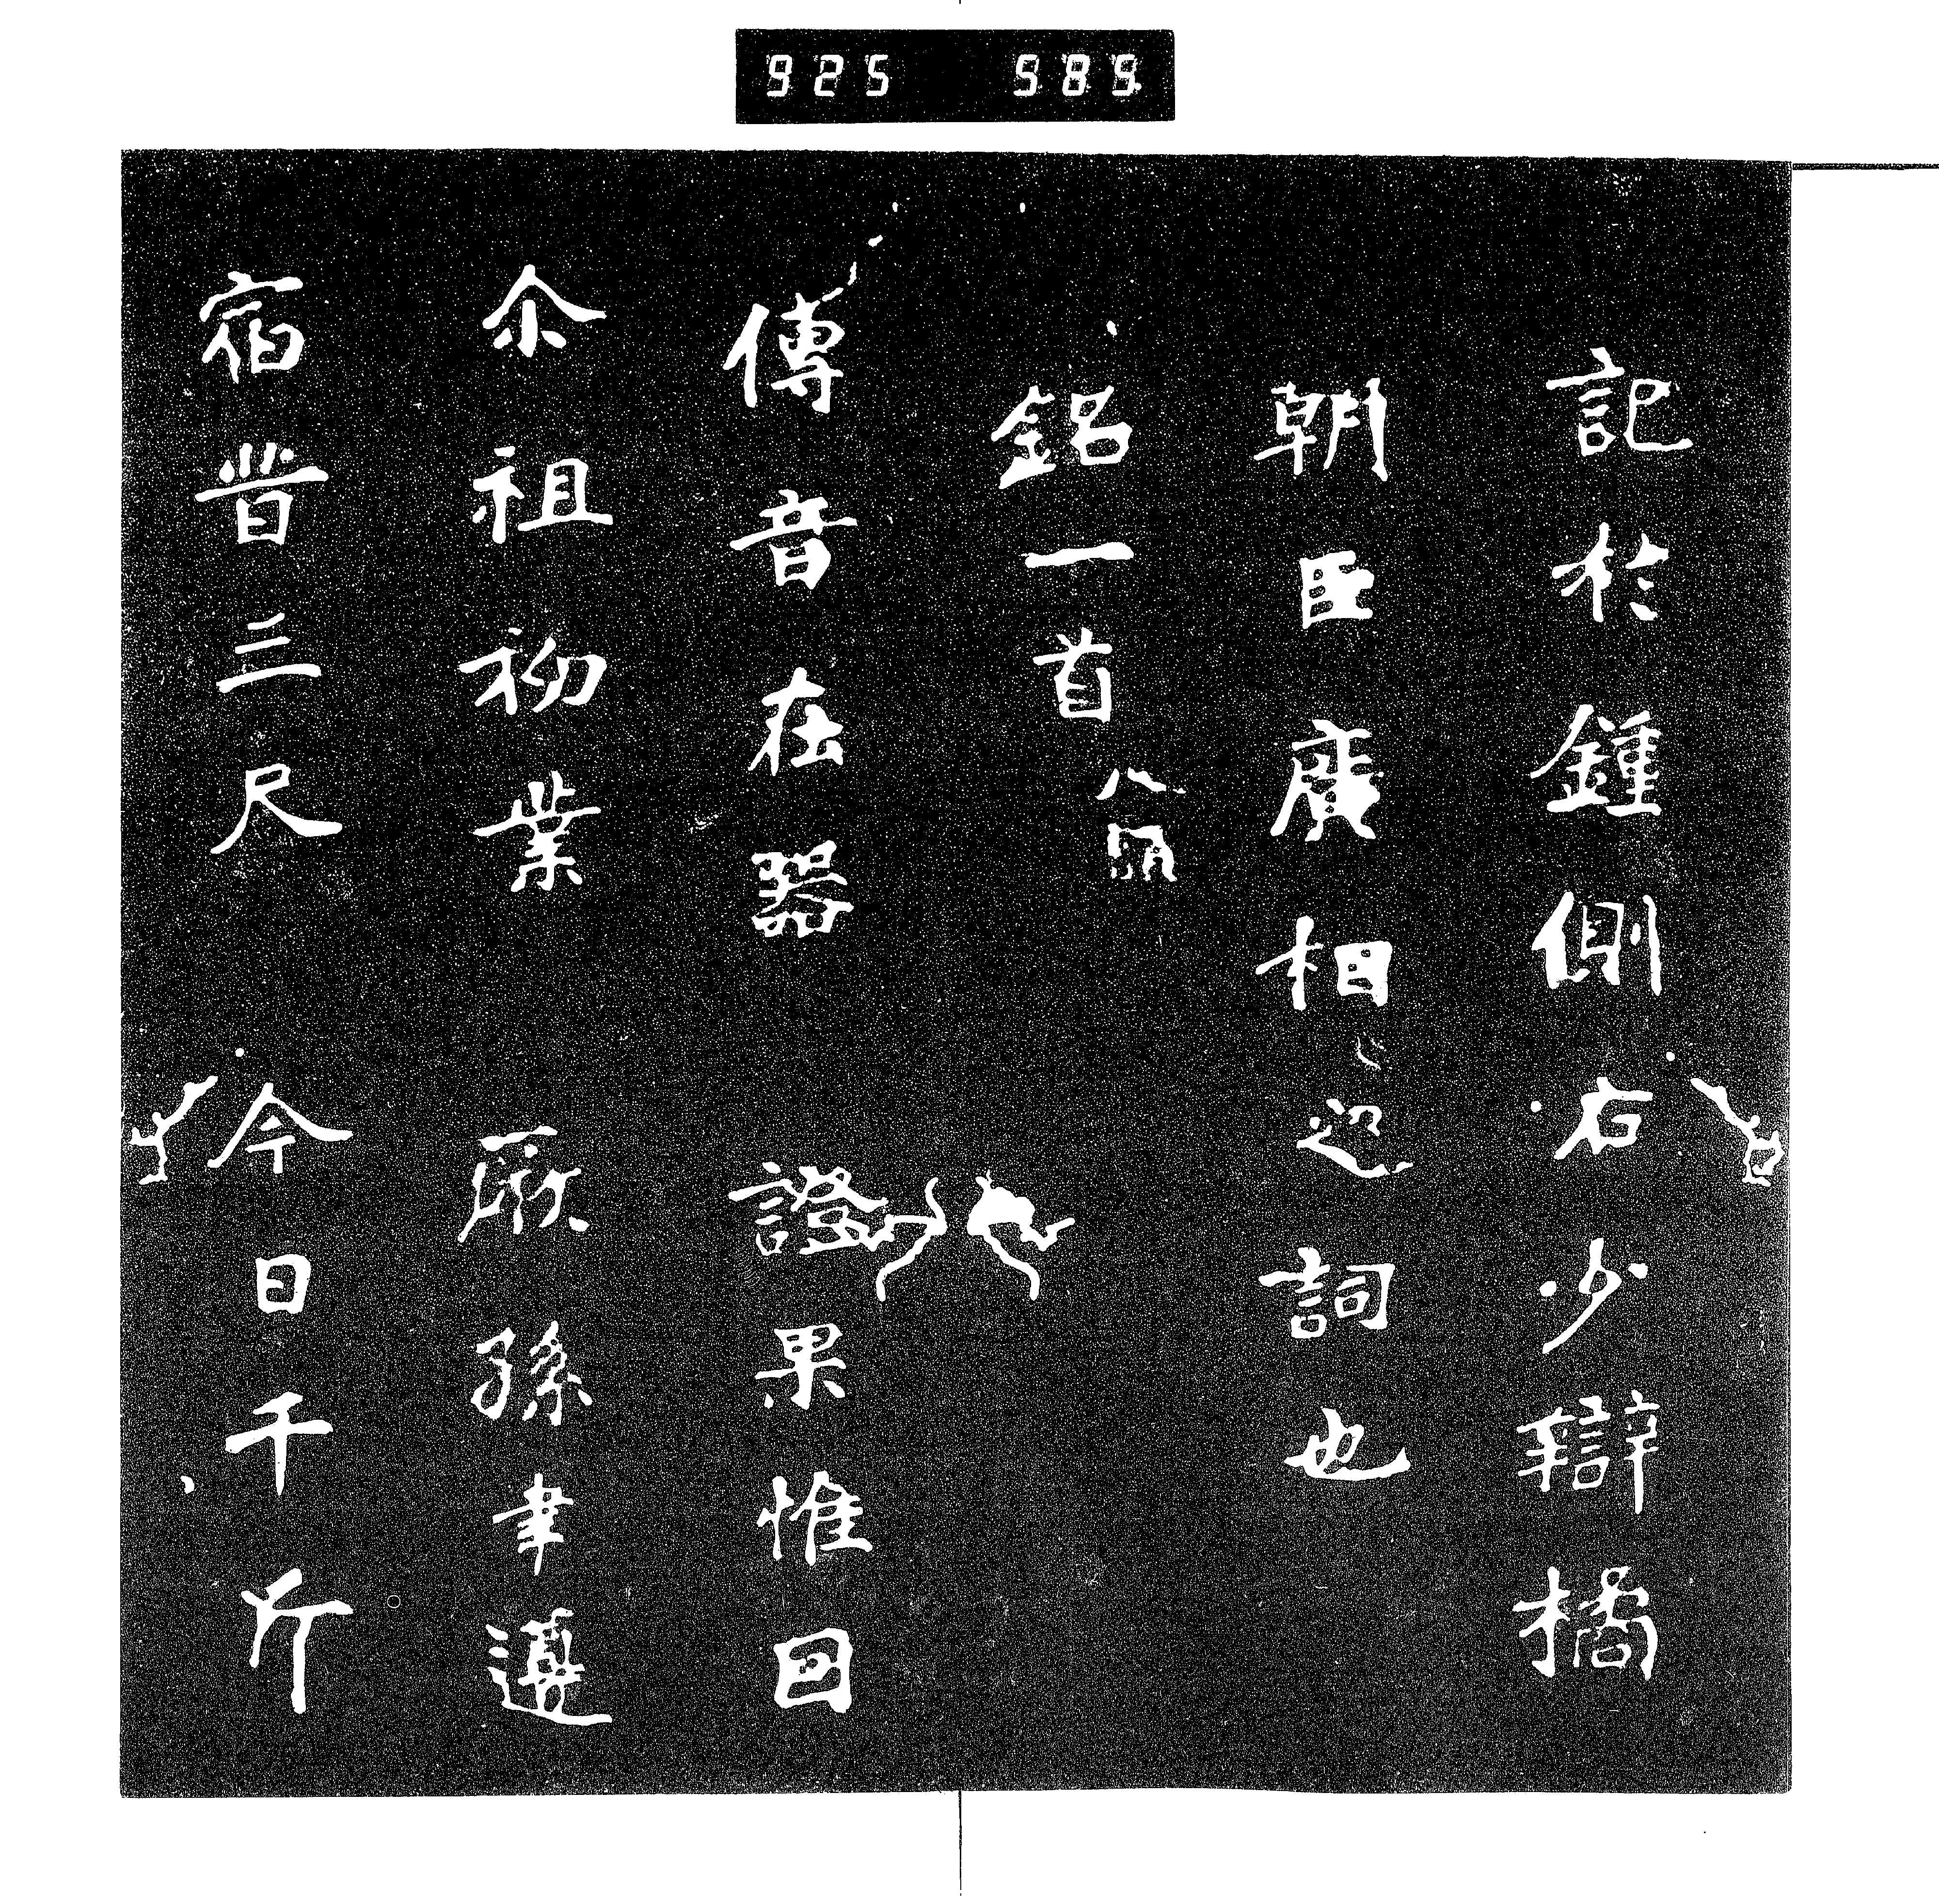 925 589
記於鍾側右少辯橘
朝臣廣相之詞也
銘一首 八韻
傳音在器 證果惟因
尒祖初業 厥孫聿遵
宿昔三尺 今日千斤